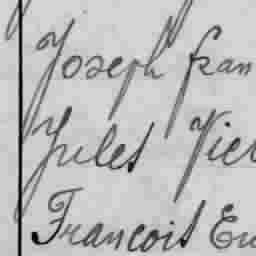 Joseph fran
Jules Vict
Francois Eu